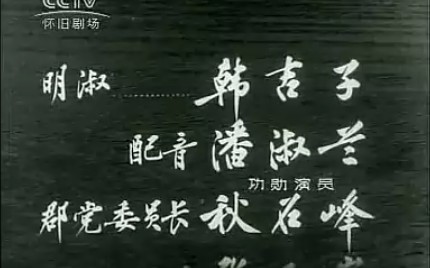 CCTV
怀旧剧场
明淑……韩吉子
配音潘淑兰
功勋演员
郡党委员长秋石峰